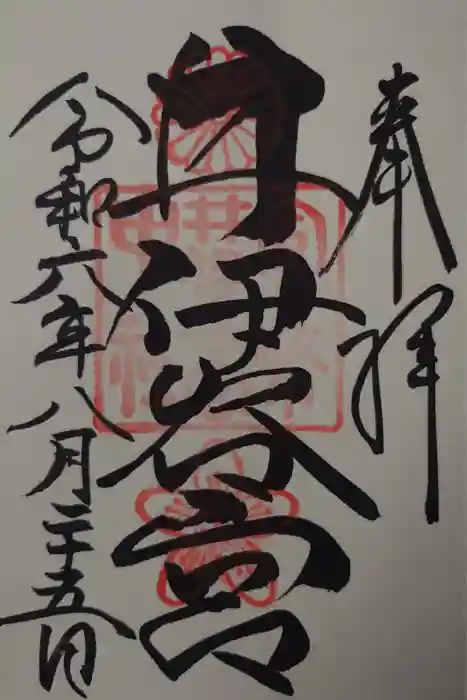 奉拝
井伊谷宮
令和六年八月二十五日